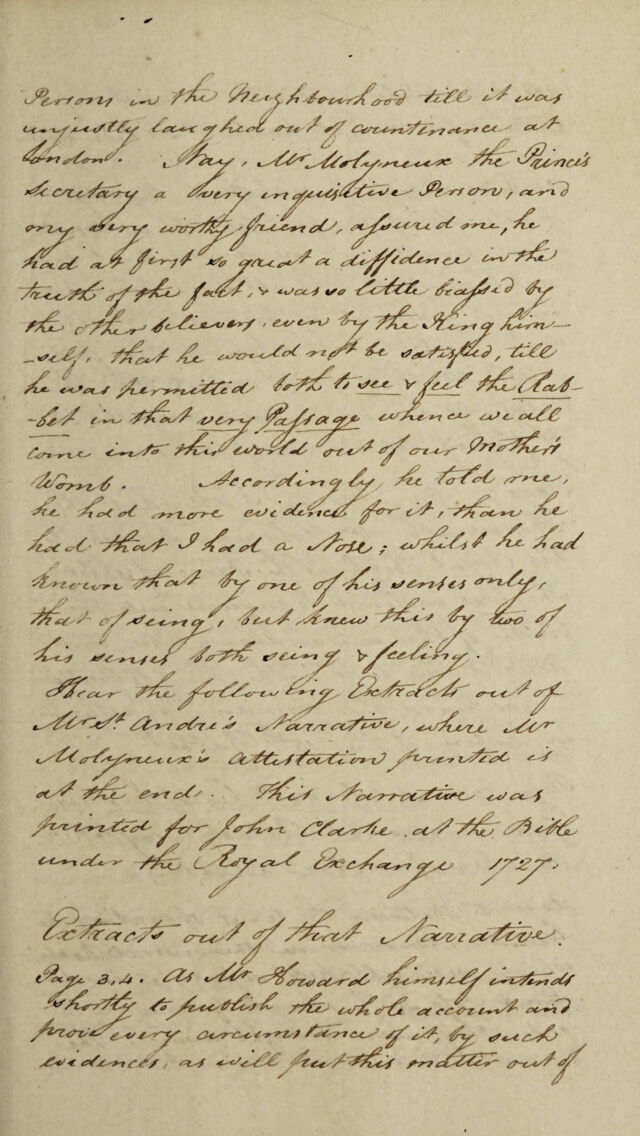 Persons in the Neighbourhood till it was
unjustly laughed out of countinance at
London. Nay, Mr Molyneux the Prince's
Secretary a very inquisitive Person, and
my very worthy friend, assured me, he
had at first so great a diffidence in the
truth of the fact, & was so little biassed by
the other believers, even by the King him-
-self, that he would not be satisfied, till
he was permitted both to see & feel the Rab-
-bet in that very Passage whence we all
come into this world out of our Mother's
Womb. Accordingly he told me,
he had more evidence for it, than he
had that I had a Nose; whilst he had
known that by one of his senses only,
that of seing, but knew this by two of
his senses both seing & feeling.
Hear the following Extracts out of
Mr St. André's Narrative, where Mr
Molyneux's attestation printed is
at the end. This Narrative was
printed for John Clarke at the Bible
under the Royal Exchange 1727.
Extracts out of that Narrative.
Page 3,4. As Mr Howard himself intends
shortly to publish the whole account and
prove every circumstance of it, by such
evidences, as will put this matter out of